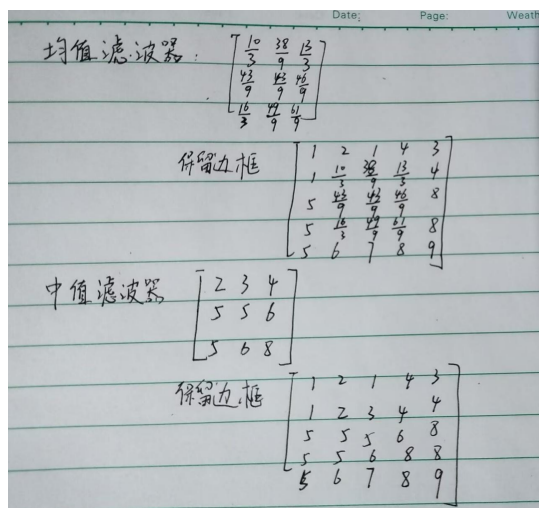 Date: Page: Weath
均值滤波器: [10/3 38/9 13/3
43/9 43/9 46/9
16/3 49/9 61/9]
保留边框 [1 2 1 4 3
1 10/3 38/9 13/3 4
5 43/9 43/9 46/9 8
5 16/3 49/9 61/9 8
5 6 7 8 9]
中值滤波器 [2 3 4
5 5 6
5 6 8]
保留边框 [1 2 1 4 3
1 2 3 4 4
5 5 5 6 8
5 5 6 8 8
5 6 7 8 9]